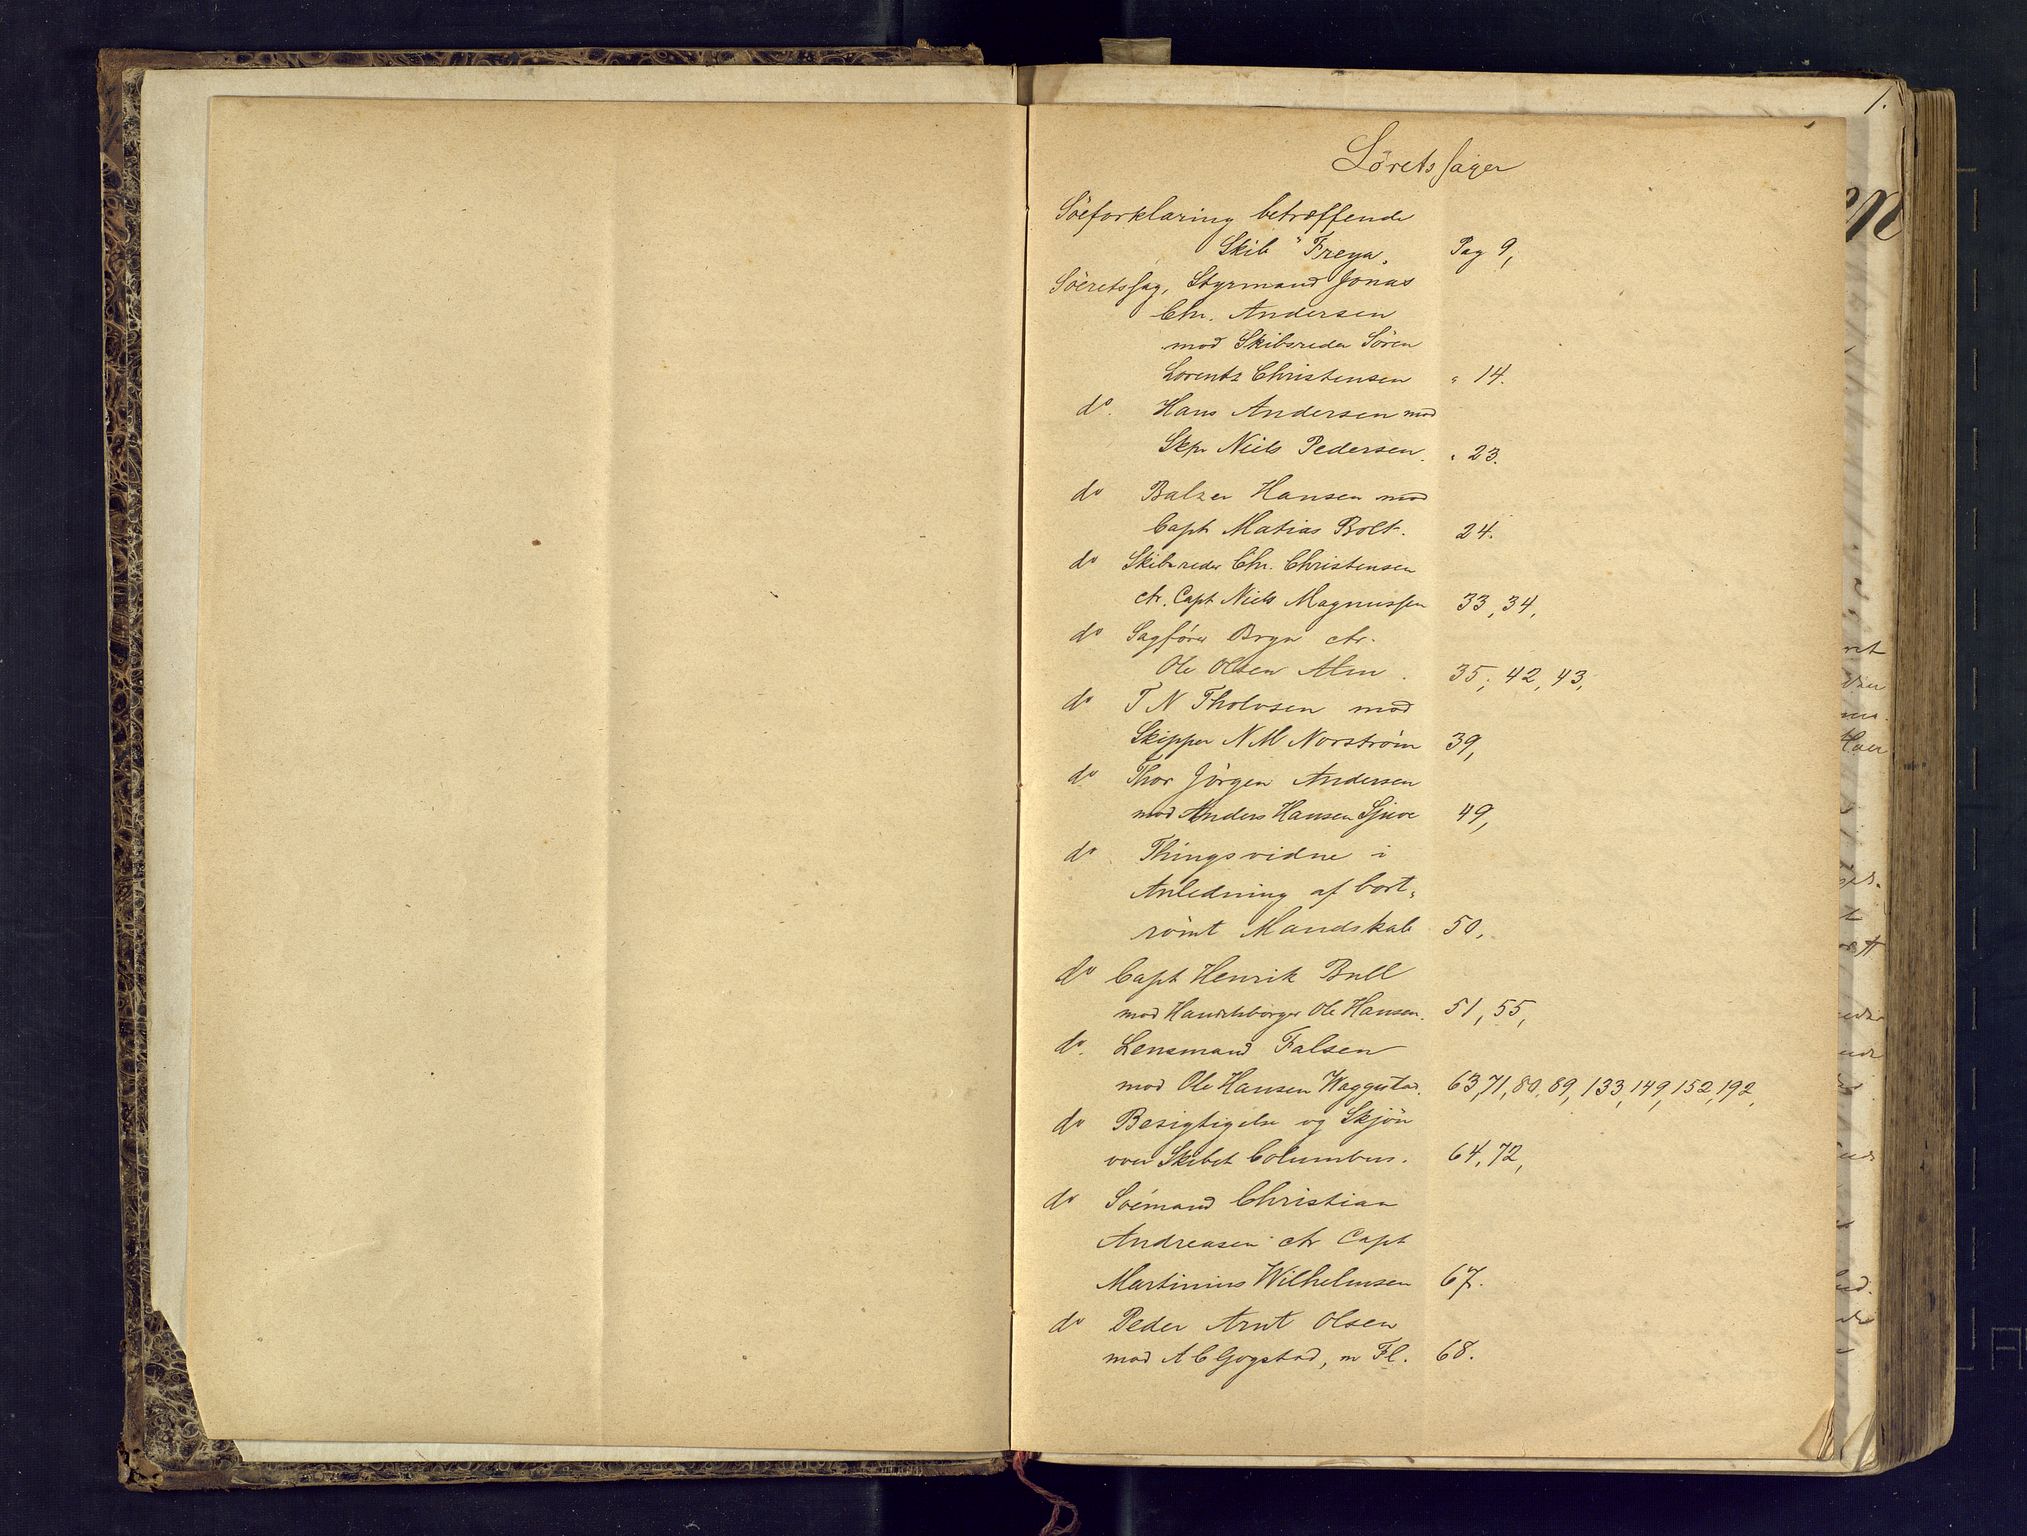 1.
Sørets sager
Söeforklaring betræffende
Skib "Freya„ Pag 9,
Söeretssag, Styrmand Jonas
Chr. Andersen
mod Skibsreder Sören
Lorents Christensen " 14.
do. Hans Andersen mod
Skpr Niels Pedersen. " 23.
do Balzer Hansen mod
Capt Matias Bolt. 24.
do Skibsreder Chr. Christensen
ctr. Capt Niels Magnussen 33, 34,
do Sagförer Bryn ctr.
Ole Olsen Alm . 35, 42, 43,
do T N Tholvsen mod
Skipper N M Norström 39,
do Thor Jörgen Andersen
mod Anders Hansen Sjuve 49,
do Thingsvidne i
Anledning af bort-
römt Mandskab 50,
do Capt Henrik Bull
mod Handelsborger Ole Hansen. 51, 55,
do. Lensmand Falsen
mod Ole Hansen Waggestad. 63, 71, 80, 89, 133, 149, 152, 192,
do Besigtigelse og Skjön
over Skibet Columbus. 64, 72,
do Söemand Christian
Andreasen ctr Capt
Martinius Wilhelmsen 67.
do Peder Arnt Olsen
mod A C Gogstad, m Fl. 68.